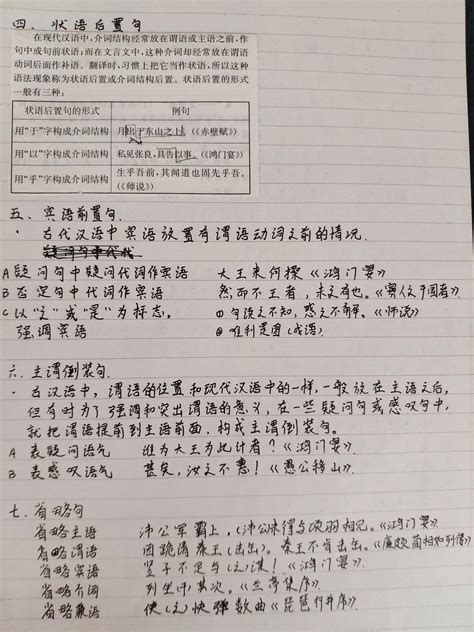 四、状语后置句
在现代汉语中,介词结构经常放在谓语或主语之前,作
句中或句前状语;而在文言文中,这种介词却经常放在谓语
动词后面作补语。翻译时,习惯上把它当作状语,所以这种
语法现象称为状语后置或介词结构后置。状语后置的形式
一般有三种:
状语后置句的形式 例句
用“于”字构成介词结构 月出于东山之上。(《赤壁赋》)
用“以”字构成介词结构 私见张良,具告以事。(《鸿门宴》)
用“乎”字构成介词结构 生乎吾前,其闻道也固先乎吾。
(《师说》)
五、宾语前置句.
· 古代汉语中宾语放置有谓语动词之前的情况.
A 疑问句中疑问代词作宾语 大王来何操《鸿门宴》
B 否定句中代词作宾语 然而不王者,未之有也。《寡人之于国者》
C 以“之”或“是”为标志, ① 句读之不知,惑之不解。《师说》
强调宾语 ② 唯利是图(成语).
六、主谓倒装句.
· 古汉语中,谓语的位置和现代汉语中的一样,一般放在主语之后,
但有时为了强调和突出谓语的意义,在一些疑问句或感叹句中,
就把谓语提前到主语前面,构成主谓倒装句。
A 表疑问语气 谁为大王为此计者?《鸿门宴》
B 表感叹语气 甚矣,汝之不惠!《愚公移山》
七、省略句
省略主语 沛公军霸上,(沛公)未得与项羽相见。《鸿门宴》
省略谓语 因跪请秦王(击缶)。秦王不肯击缶。《廉颇蔺相如列传》
省略宾语 竖子不足与(之)谋!《鸿门宴》
省略介词 列坐(于)其次。《兰亭集序》
省略兼语 使(之)快弹数曲《琵琶行并序》